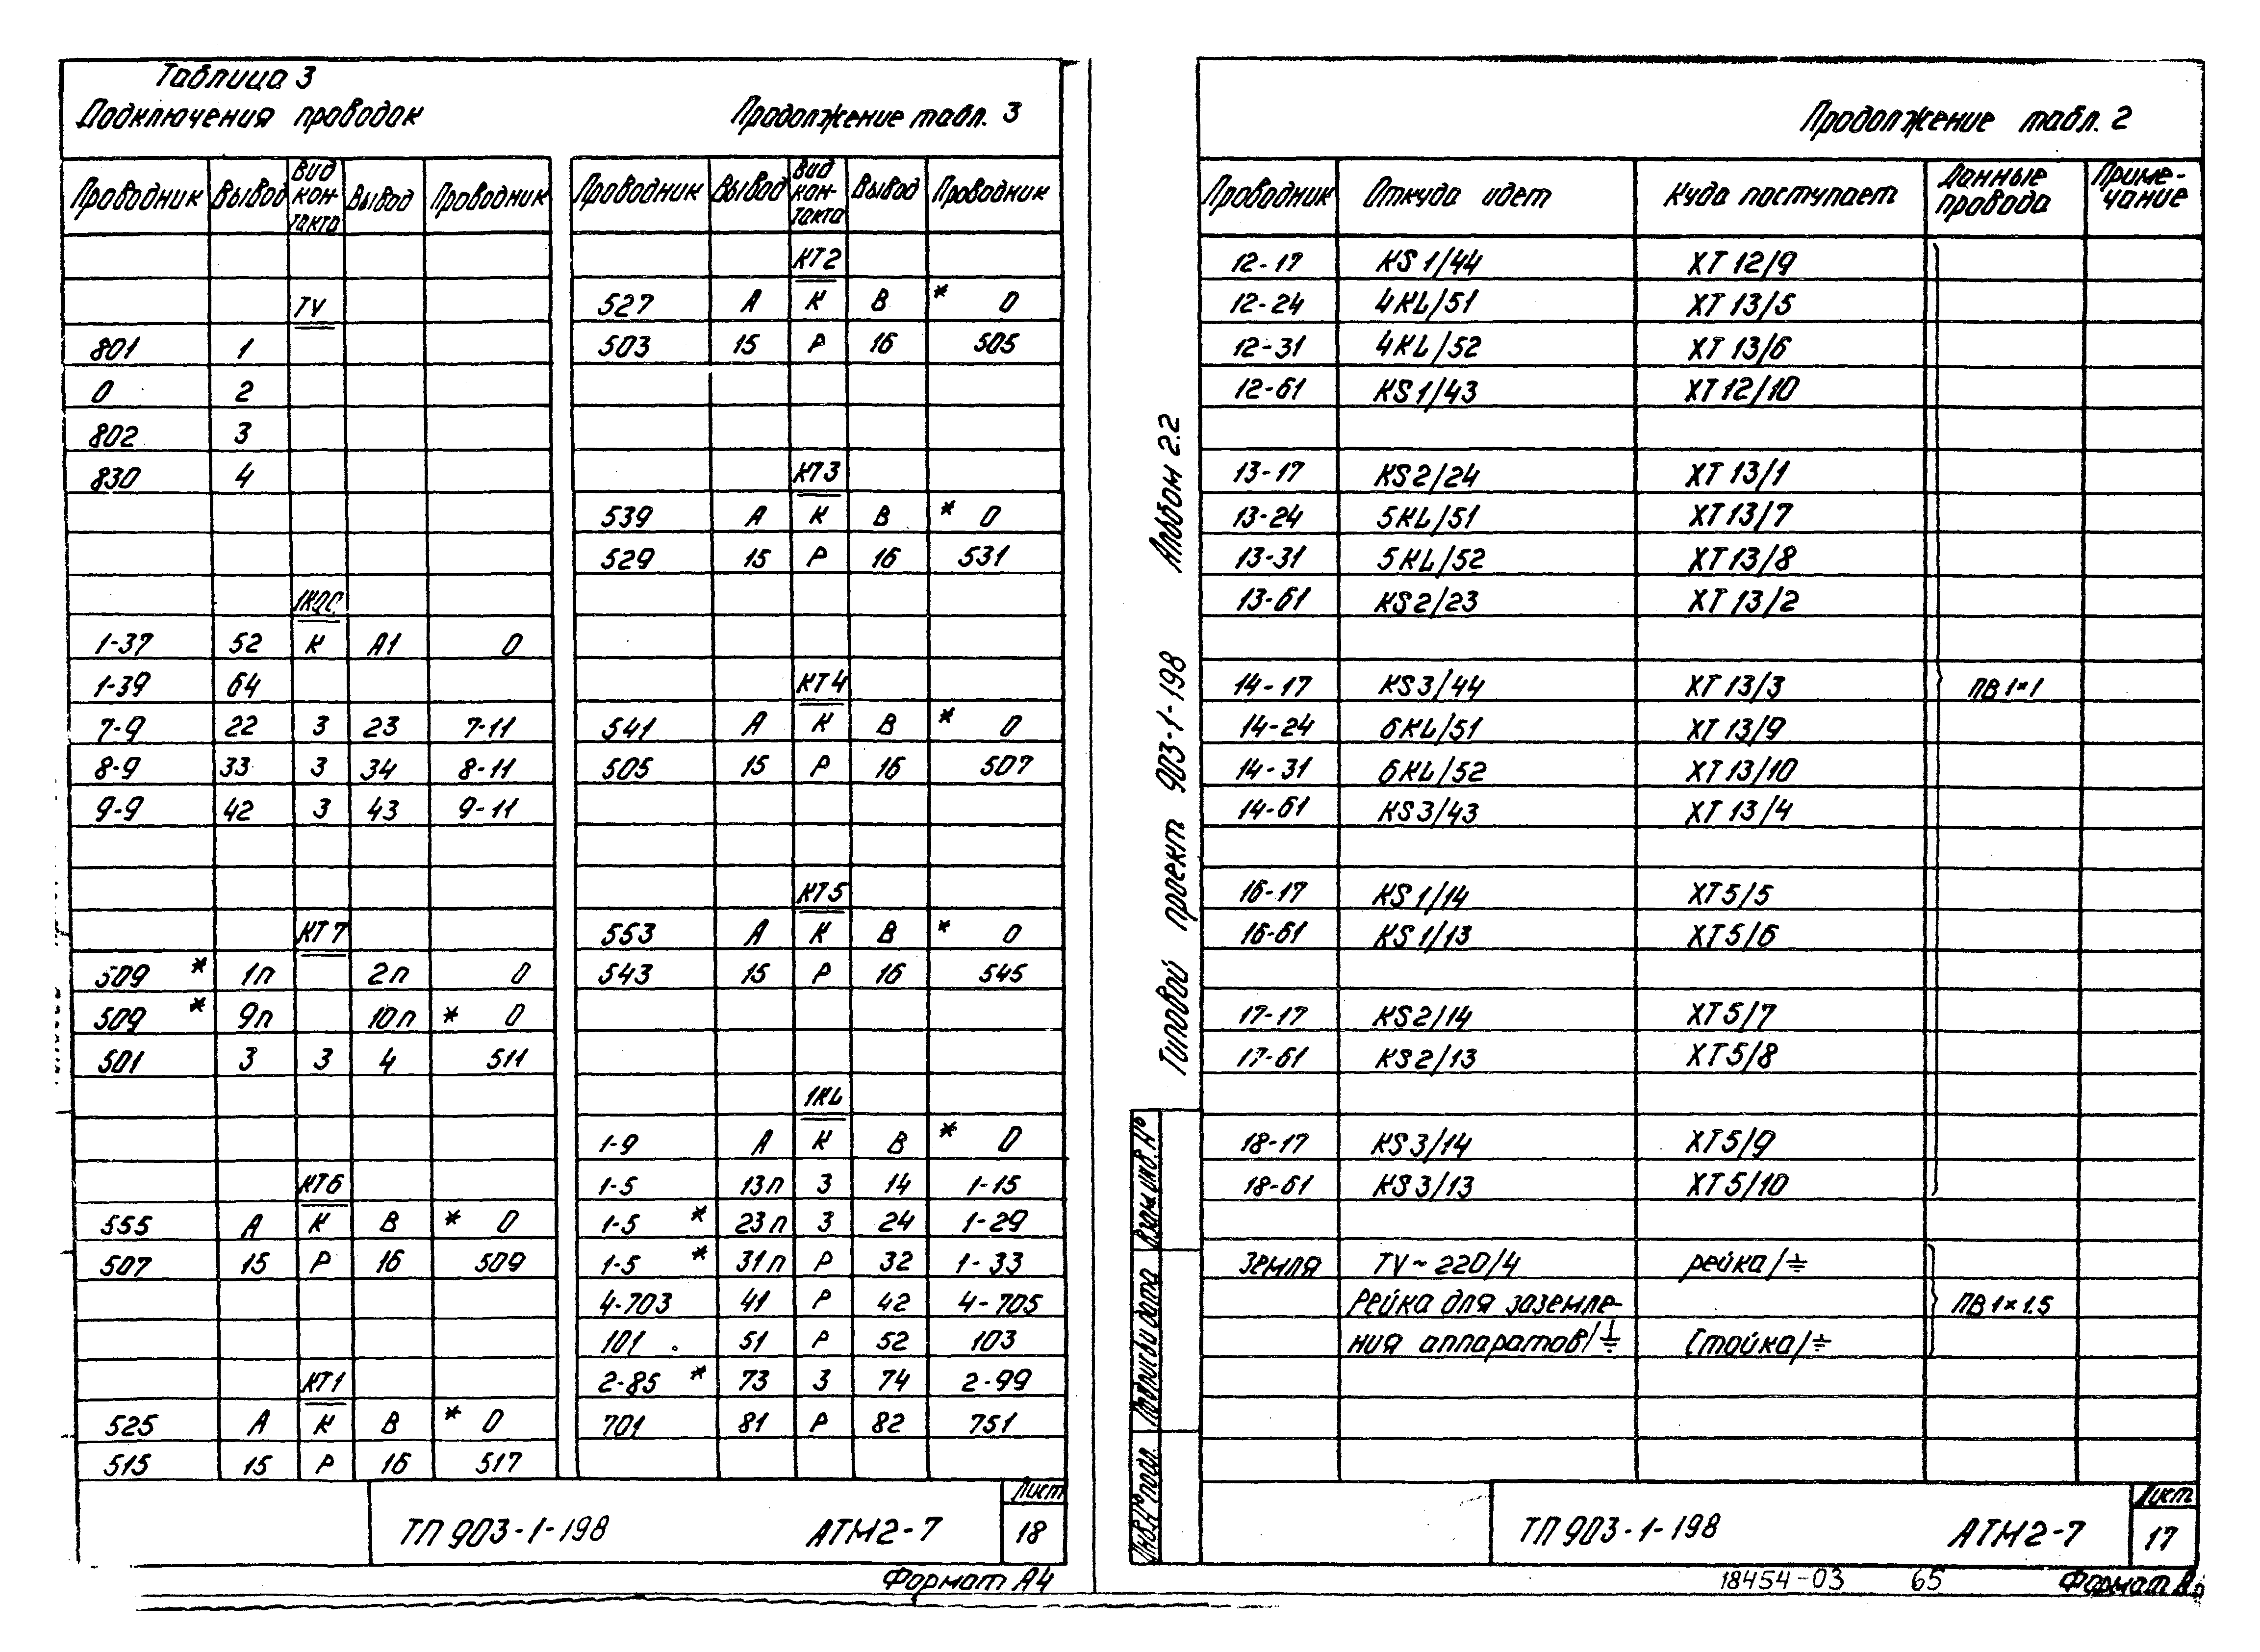 Таблица 3
Подключения проводок
Продолжение табл. 3
Проводник Вывод Вид контакта Вывод Проводник
TV
801 1
0 2
802 3
830 4
1-37 52 К А1 0
1-39 64
7-9 22 З 23 7-11
8-9 33 З 34 8-11
9-9 42 З 43 9-11
КТ7
509 * 1п 2п 0
509 * 9п 10п * 0
501 3 З 4 511
КТ6
555 А К В * 0
507 15 Р 16 509
КТ1
525 А К В * 0
515 15 Р 16 517
Проводник Вывод Вид контакта Вывод Проводник
КТ2
527 А К В * 0
503 15 Р 16 505
КТ3
539 А К В * 0
529 15 Р 16 531
КТ4
541 А К В * 0
505 15 Р 16 507
КТ5
553 А К В * 0
543 15 Р 16 545
1KL
1-9 А К В * 0
1-5 13п З 14 1-15
1-5 * 23п З 24 1-29
1-5 * 31п Р 32 1-33
4-703 41 Р 42 4-705
101 51 Р 52 103
2-85 * 73 З 74 2-99
701 81 Р 82 751
ТП 903-1-198 АТМ2-7
Лист
18
Формат А4
Продолжение табл. 2
Проводник Откуда идет Куда поступает Данные провода Примечание
12-17 KS1/44 XT12/9
12-24 4KL/51 XT13/5
12-31 4KL/52 XT13/6
12-61 KS1/43 XT12/10
13-17 KS2/24 XT13/1
13-24 5KL/51 XT13/7
13-31 5KL/52 XT13/8
13-61 KS2/23 XT13/2
14-17 KS3/44 XT13/3 ПВ 1×1
14-24 6KL/51 XT13/9
14-31 6KL/52 XT13/10
14-61 KS3/43 XT13/4
16-17 KS1/14 XT5/5
16-61 KS1/13 XT5/6
17-17 KS2/14 XT5/7
17-61 KS2/13 XT5/8
18-17 KS3/14 XT5/9
18-61 KS3/13 XT5/10
Земля TV~220/4 рейка/⏚
Рейка для заземле- ПВ 1×1.5
ния аппаратов/⏚ Стойка/⏚
Альбом 2.2
Типовой проект 903-1-198
Взам инв. №
Подпись и дата
Инв. № подл.
ТП 903-1-198 АТМ2-7
Лист
17
18454-03 65
Формат